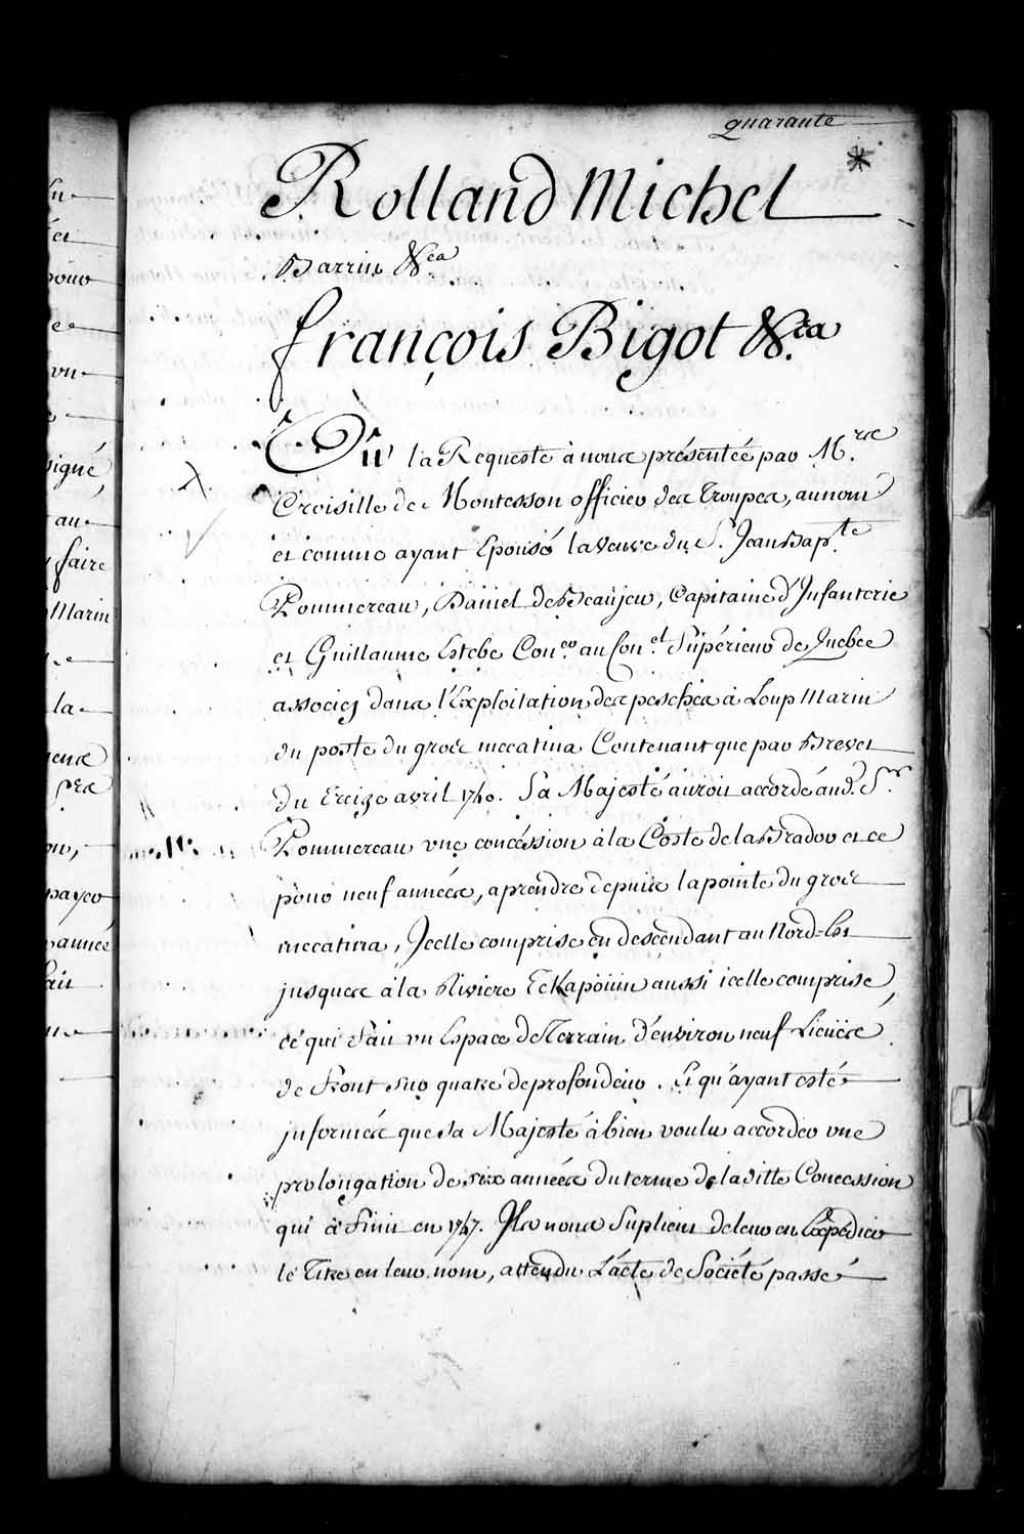 quarante
Rolland Michel
Barrin &ca
françois Bigot &ca
Vû la Requeste à nous présentée par Mrs
Croisille de Montesson officier des Troupes, au nom
et comme ayant Epousé la veuve du S. Jean Bapte
Pommereau, Daniel de Beaujeu, Capitaine d'Infanterie
et Guillaume Estebe Coner au Conel Supérieur de Quebec
associés dans l'Exploitation des pesches à Loup Marin
du poste du gros mecatina Contenant que par Brevet
du Treize avril 1740. Sa Majesté auroit accordé aud. Sr
Pommereau vne concéssion à la Coste de la Brador et ce
pour neuf années, a prendre depuis la pointe du gros
mecatina, Icelle comprise en descendant au Nord-Est
jusques à la Riviere Tekapoüin aussi icelle comprise,
ce qui fait vn Espace de Terrain d'environ neuf Lieües
de front sur quatre de profondeur. Et qu'ayant esté
informés que Sa Majesté à bien voulu accorder vne
prolongation de six années du terme de la ditte Concession
qui à finit en 1747. Ils nous Suplient de leur en Expédier
le Titre en leur nom, attendu L'acte de Société passé
su
et
pour
e
vn
signé,
au
faire
Marin
la
payer
année
fait